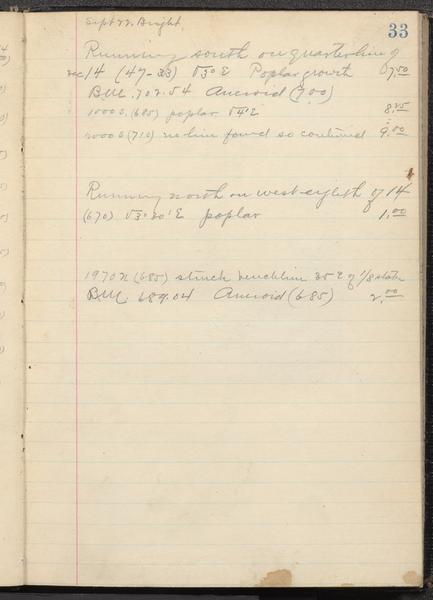 Sept 22. Bright
33
Running south on quarterline of
sec 14 (47-33) V3° E Poplar growth 7.50
B.M. 702.54 Aneroid (700)
1000 S (685) poplar V4° E 8.25
2000 S (710) no line found so continued 9.00
Running north on west eighth of 14
(670) V3° 20' E poplar 1.00
1970 N (685) struck benchline 35 E of 1/8 stake
B.M. 689.04 Aneroid (685) 2.00